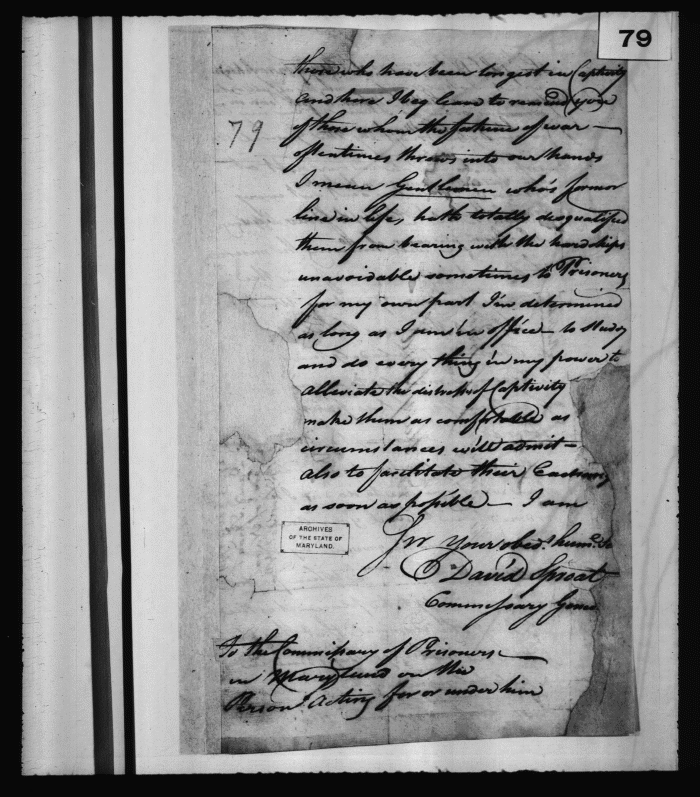 79
79
those who have been longest in Captivity
and here I beg leave to remind you
of those whom the fortune of war —
oftentimes throws into our hands
I mean Gentlemen who's former
line in life, hath totally disqualified
them from bearing with the hardships
unavoidable sometimes to Prisoners
for my own part I'm determined
as long as I am in office — to study
and do every thing in my power to
alleviate the distress of Captivity
make them as comfortable as
circumstances will admit —
also to facilitate their
as soon as possible — I am
Sir Your obedt. humle. St
David Sproat
Commissary Genel
ARCHIVES
OF THE STATE OF
MARYLAND.
To the Commissary of Prisoners —
in Maryland or the
Person Acting for or under him